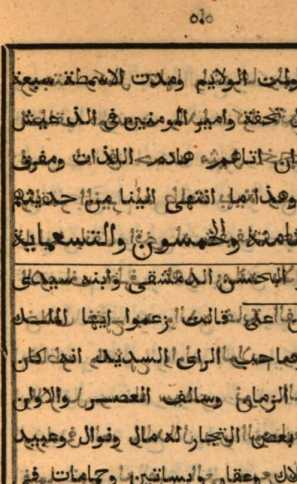 ٥١٥
ولمت الولايم ومدت الاسمطة سبعة
تحفة وامير المومنين فى الذ عيش
ان اتاهم هادم اللذات ومفرق
وهذا ما انتهى الينا من حديثهم
والخمسون والتسعماية
الحسن الدمشقى وابنه سيدى
على قالت زعموا ايها الملك
صاحب الراى السديد انه كان
الزمان وسالف العصر والاوان
بعض التجار له مال ونوال وعبيد
وعقار وبساتين وحمامات